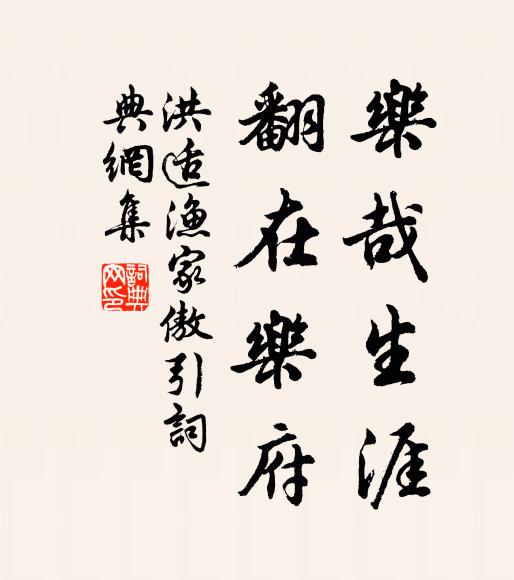 樂哉生涯
翻在樂府
洪适漁家傲引詞
典網集
詞典网印